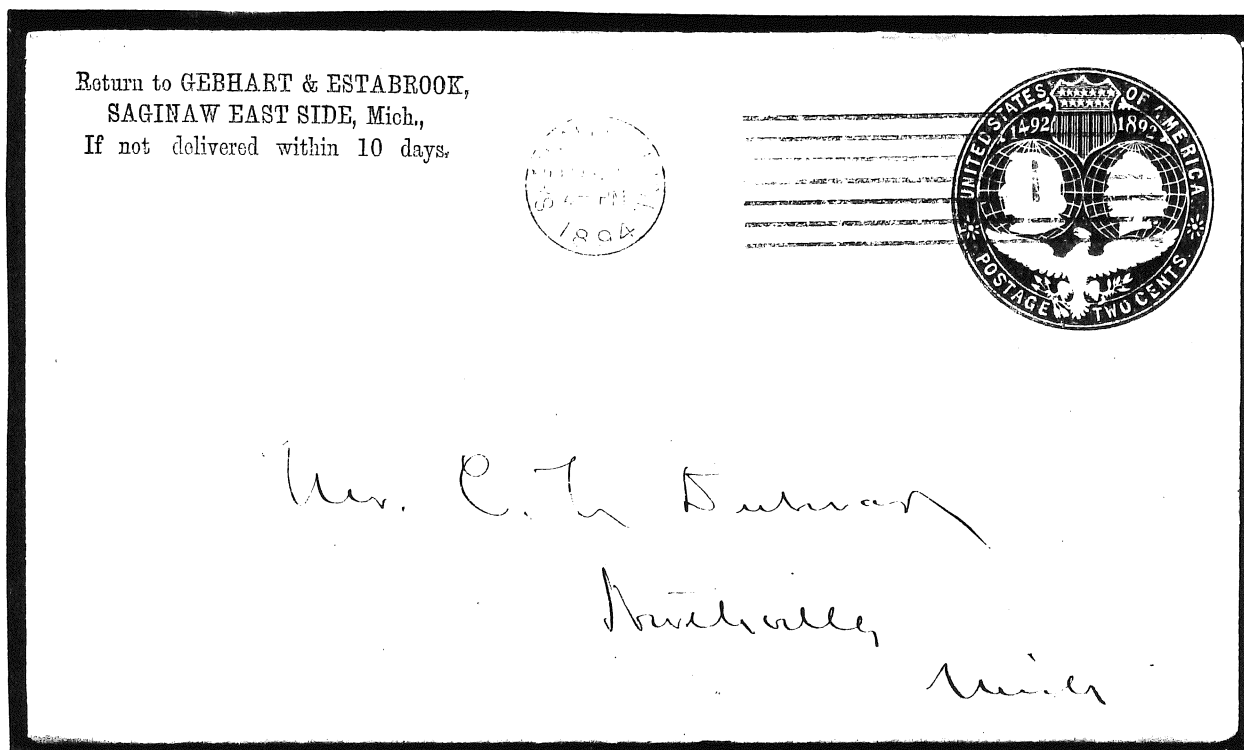 Return to GEBHART & ESTABROOK,
SAGINAW EAST SIDE, Mich.,
If not delivered within 10 days.
1894
UNITED STATES OF AMERICA
1492 1892
POSTAGE TWO CENTS
Mr. C.
Northville
Mich